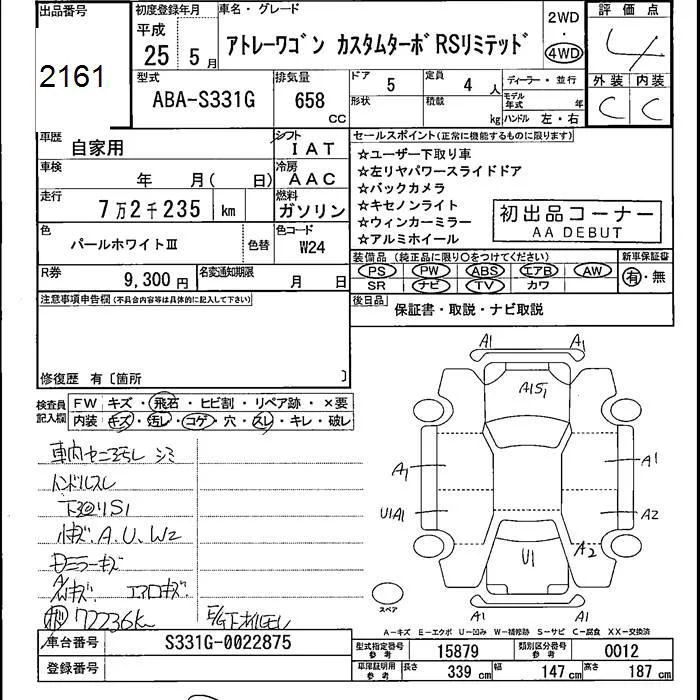 出品番号
2161
初度登録年月
平成
25 5月
車名・グレード
アトレーワゴン カスタムターボRSリミテッド
2WD
・
4WD
評価点
4
外装 内装
C C
型式
ABA-S331G
排気量
658 CC
ドア 5
定員 4人
形状
積載 kg
ディーラー・並行
モデル年式 年
ハンドル 左・右
車歴
自家用
シフト
IAT
車検
年 月( 日)
冷房
AAC
走行
7万2千235 km
燃料
ガソリン
色
パールホワイトⅢ
色替
色コード
W24
R券
9,300円
名変通知期限
月 日
セールスポイント(正常に機能するものに限ります)
☆ユーザー下取り車
☆左リヤパワースライドドア
☆バックカメラ
☆キセノンライト
☆ウィンカーミラー
☆アルミホイール
初出品コーナー
AA DEBUT
装備品(純正品に限り○をつけてください)
PS PW ABS エアB AW
SR ナビ TV カワ
新車保証書
有・無
後日品
保証書・取説・ナビ取説
注意事項申告欄(不具合内容等は具体的に記入して下さい)
修復歴 有〔箇所 〕
検査員記入欄
FW キズ・飛石・ヒビ割・リペア跡・×要
内装 キズ・汚レ・コゲ・穴・スレ・キレ・破レ
車内セニヨゴレ シミ
ハンドルスレ
下回りS1
小キズ.A.U.W2
ドミラーキズ
AWキズ エアロキズ
72236km E/G下オイルモレ
A1 A1
A1S1
A1 A1
U1A1 A2
A2
U1
A1 A1
スペア
A-キズ E-エクボ U-凹み W-補修跡 S-サビ C-腐食 XX-交換済
車台番号
S331G-0022875
登録番号
型式指定番号 参考
15879
類別区分番号 参考
0012
車庫証明用 参考
長さ 339 cm
幅 147 cm
高さ 187 cm